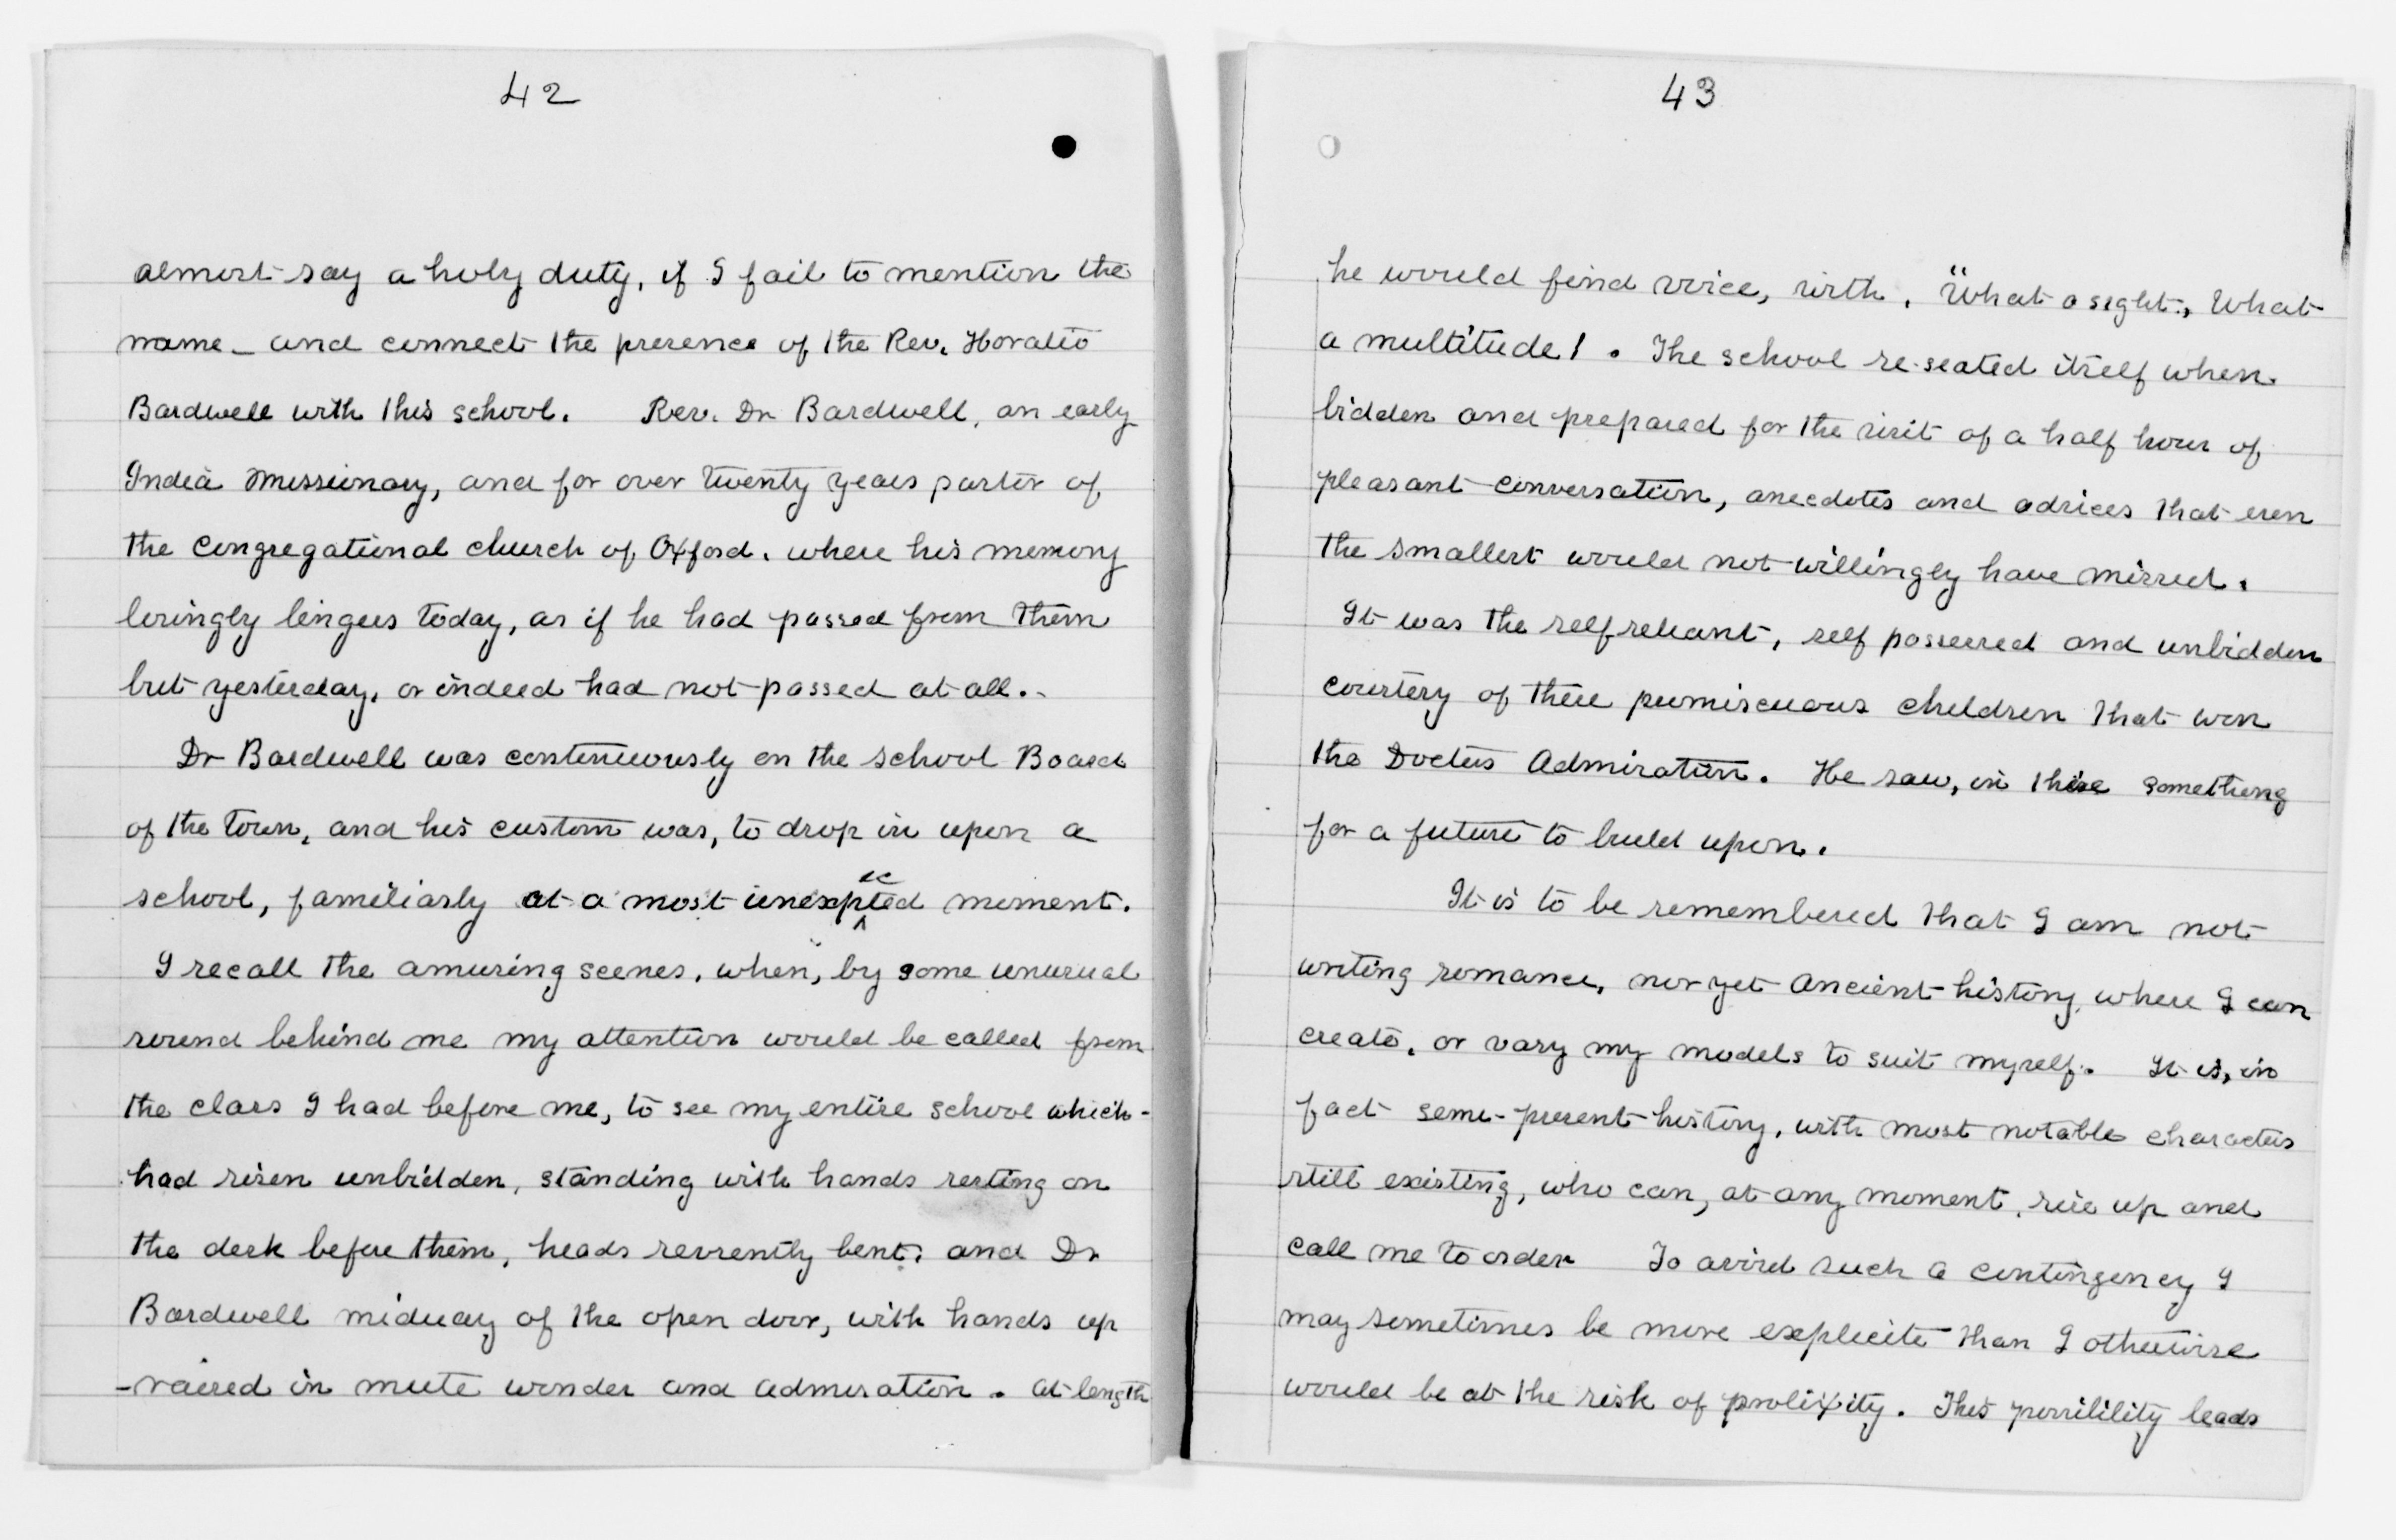 42
almost say a holy duty, if I fail to mention the
name - and connect the presence of the Rev. Horatio
Bardwell with this school. Rev. Dr Bardwell, an early
India Missionary, and for over twenty years pastor of
the Congregational church of Oxford, where his memory
lovingly lingers today, as if he had passed from them
but yesterday, or indeed had not passed at all.
Dr Bardwell was continuously on the school Board
of the town, and his custom was, to drop in upon a
school, familiarly at a most unexpected moment.
I recall the amusing scenes, when, by some unusual
sound behind me my attention would be called from
the class I had before me, to see my entire school which
had risen unbidden, standing with hands resting on
the desk before them, heads reverently bent, and Dr
Bardwell midway of the open door, with hands up
-raised in mute wonder and admiration. At length
43
he would find voice, with, "What a sight, What
a multitude! . The school re-seated itself when
bidden and prepared for the visit of a half hour of
pleasant conversation, anecdotes and advices that even
the smallest would not willingly have missed.
It was the self reliant, self possessed and unbidden
courtesy of these promiscuous children that won
the Doctors Admiration. He saw, in these something
for a future to build upon.
It is to be remembered that I am not
writing romance, nor yet Ancient history, where I can
create, or vary my models to suit myself. It is, in
fact semi-present history, with most notable characters
still existing, who can, at any moment, rise up and
call me to order To avoid such a contingency I
may sometimes be more explicite than I otherwise
would be at the risk of prolixity. This possibility leads